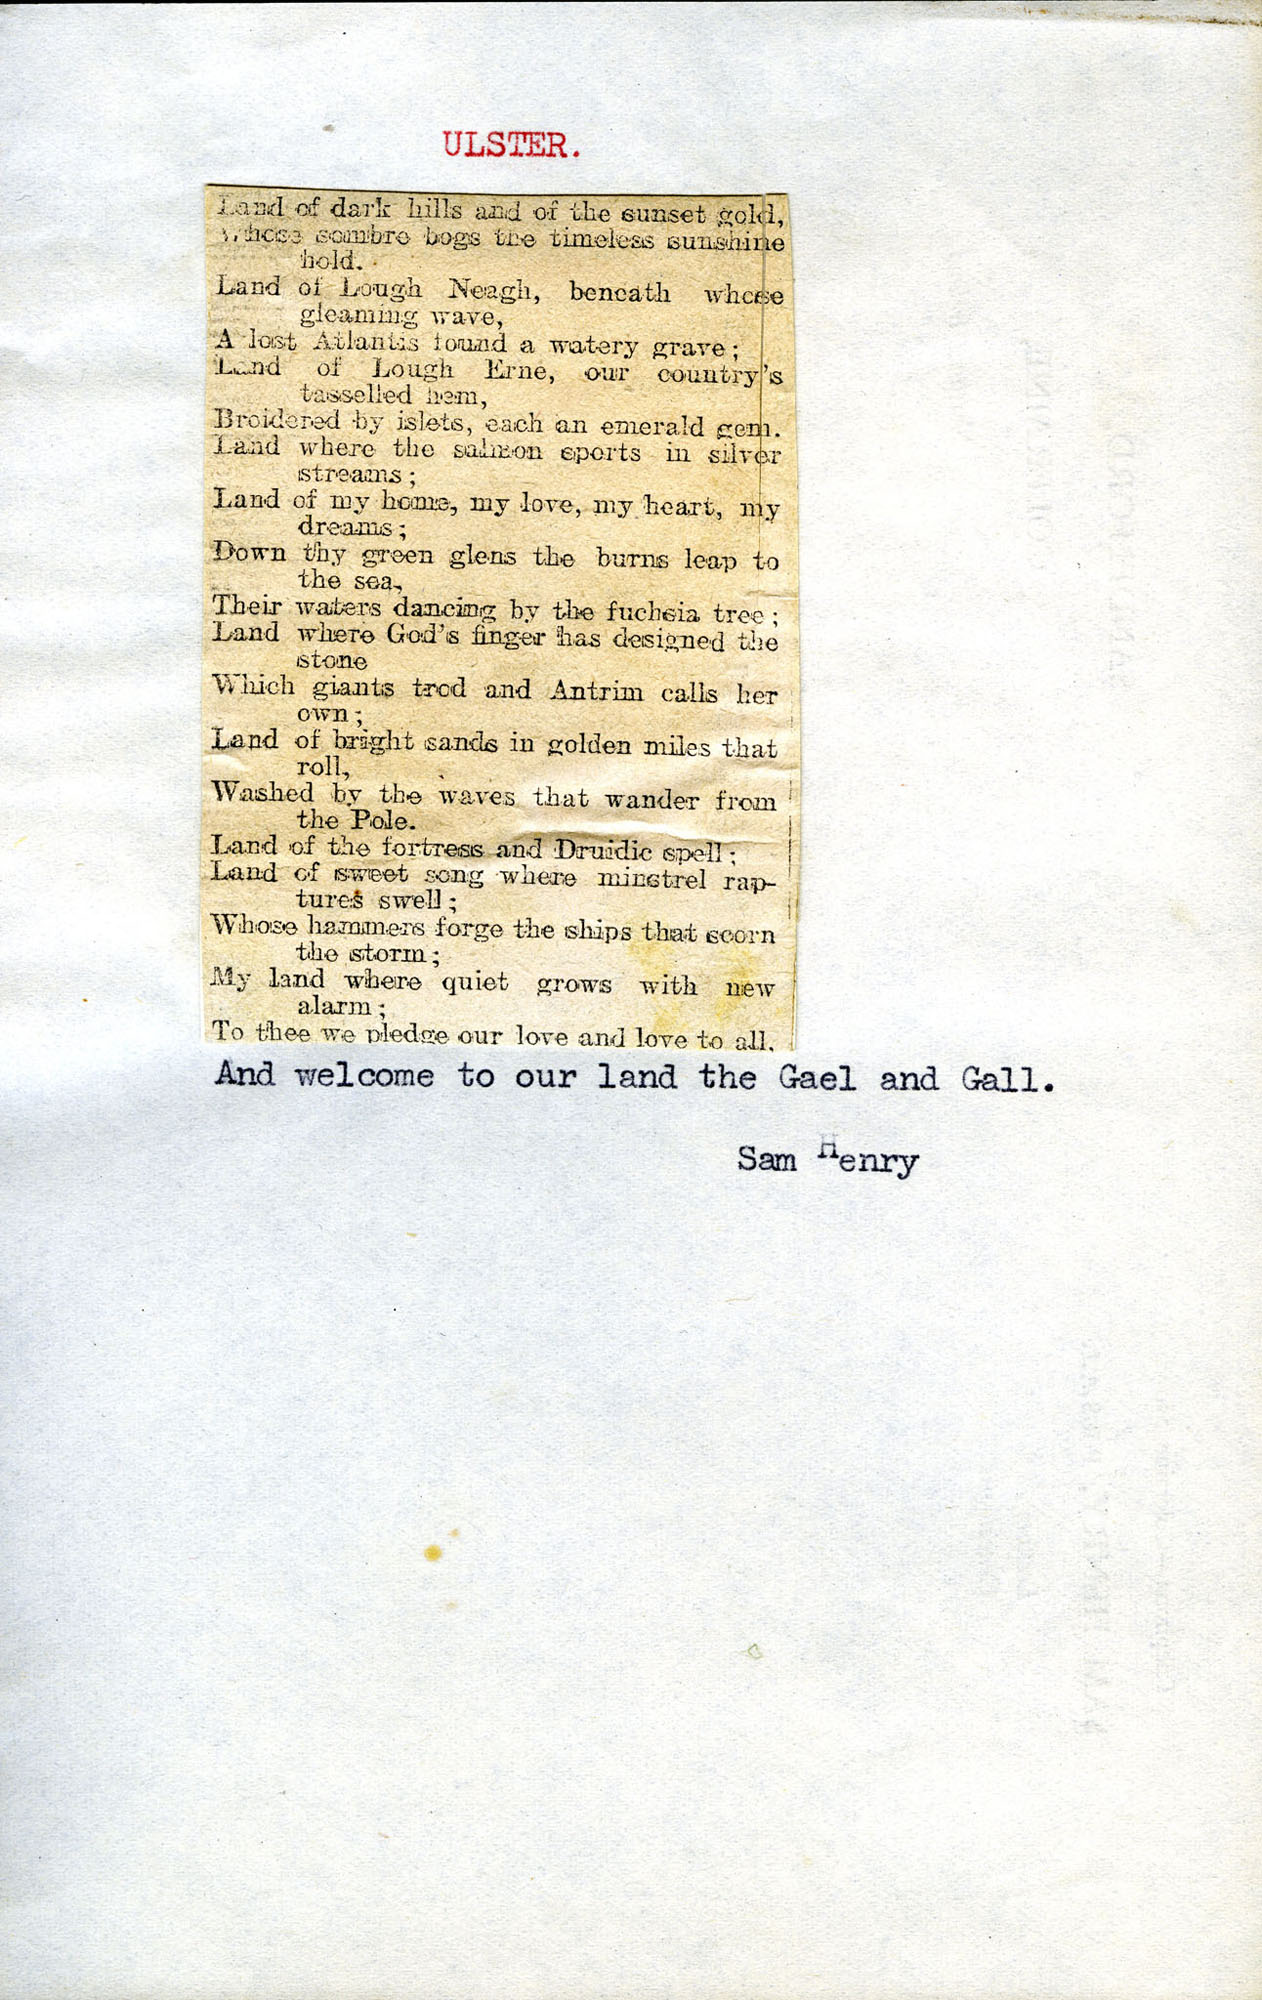 ULSTER.
Land of dark hills and of the sunset gold,
Whose sombre bogs the timeless sunshine
hold.
Land of Lough Neagh, beneath whose
gleaming wave,
A lost Atlantis found a watery grave;
Land of Lough Erne, our country's
tasselled hem,
Broidered by islets, each an emerald gem.
Land where the salmon sports in silver
streams;
Land of my home, my love, my heart, my
dreams;
Down thy green glens the burns leap to
the sea,
Their waters dancing by the fuchsia tree;
Land where God's finger has designed the
stone
Which giants trod and Antrim calls her
own;
Land of bright sands in golden miles that
roll,
Washed by the waves that wander from
the Pole.
Land of the fortress and Druidic spell;
Land of sweet song where minstrel rap-
tures swell;
Whose hammers forge the ships that scorn
the storm;
My land where quiet grows with new
alarm;
To thee we pledge our love and love to all,
And welcome to our land the Gael and Gall.
Sam Henry